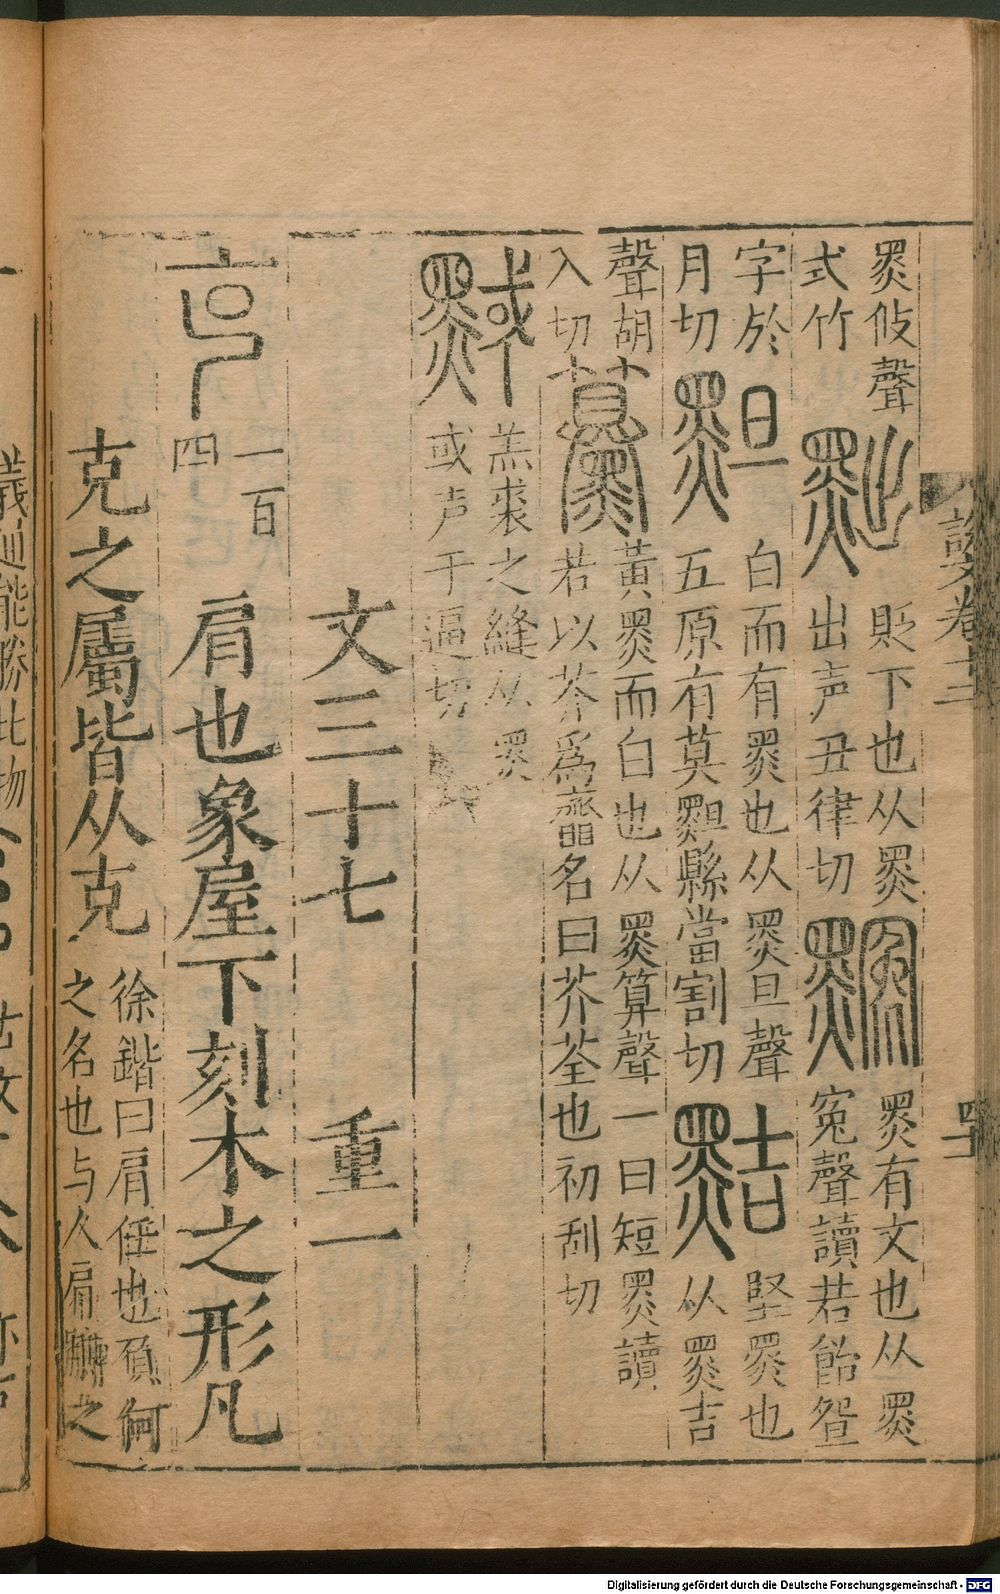 說文卷十二
黑攸聲黜貶下也从黑䵫黑有文也从黑
式竹出声丑律切冤聲讀若飴𧯡
字於䵣白而有黑也从黑旦聲黠堅黑也
月切五原有莫䵣縣當割切从黑吉
聲胡黃黑而白也从黑算聲一曰短黑讀
入切若以芥爲虀名曰芥荃也初刮切
黬羔裘之縫从黑
或声于逼切
文三十七 重一
克一百四 肩也象屋下刻木之形凡
克之屬皆从克 徐鍇曰肩任也負何
之名也与人肩膊之
Digitalisierung gefördert durch die Deutsche Forschungsgemeinschaft - DFG